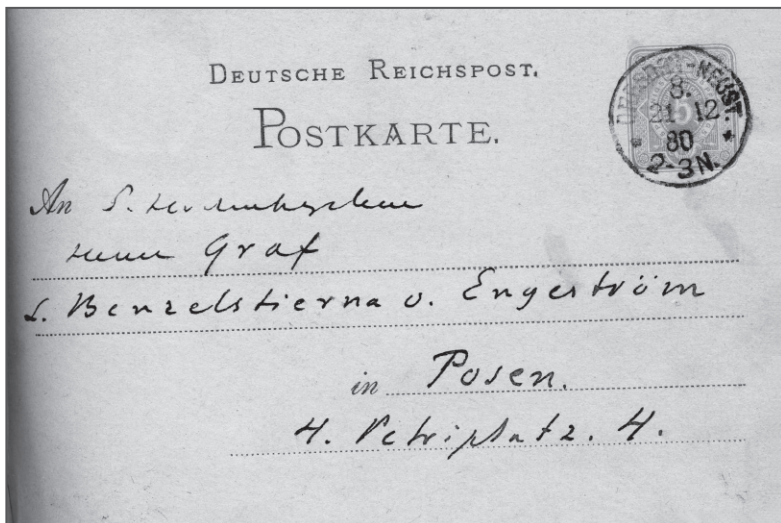 DEUTSCHE REICHSPOST.
POSTKARTE.
5
DRESDEN-NEUST.
8.
21 12
80
2-3N.
An S.
Herrn Graf
L. Benzelstierna v. Engeström
in Posen.
4. Petriplatz. 4.